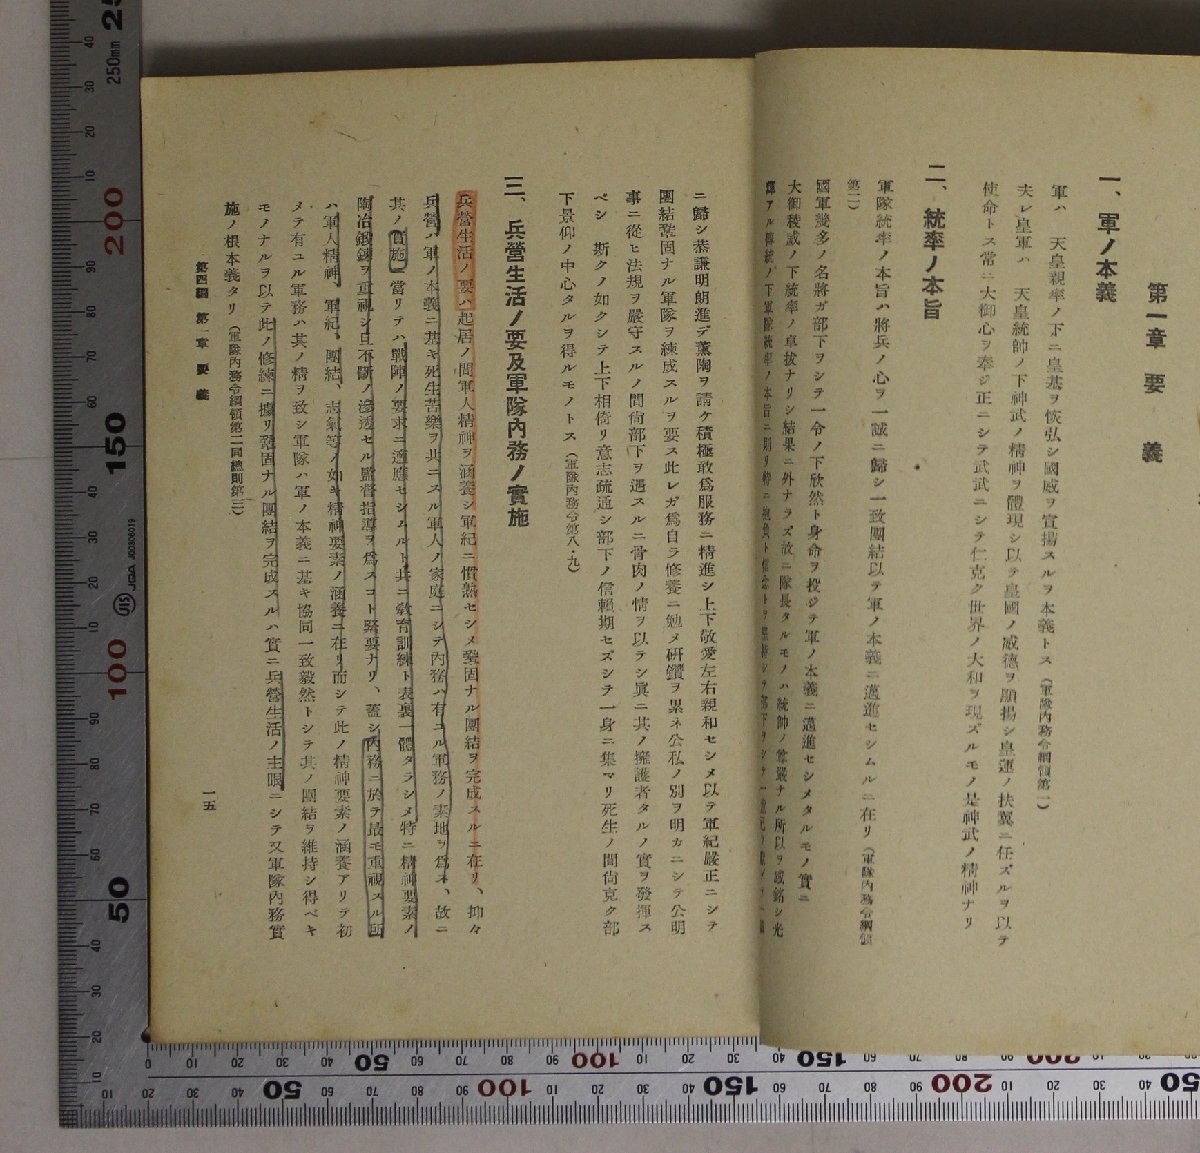 第一章 要義
一、軍ノ本義
軍ハ 天皇親率ノ下ニ皇基ヲ恢弘シ國威ヲ宣揚スルヲ本義トス（軍隊内務令綱領第一）
夫レ皇軍ハ 天皇統帥ノ下神武ノ精神ヲ體現シ以テ皇國ノ威德ヲ顯揚シ皇運ノ扶翼ニ任ズルヲ以テ
使命トス常ニ大御心ヲ奉ジ正ニシテ武武ニシテ仁克ク世界ノ大和ヲ現ズルモノ是神武ノ精神ナリ
二、統率ノ本旨
軍隊統率ノ本旨ハ將兵ノ心ヲ一誠ニ歸シ一致團結以テ軍ノ本義ニ邁進セシムルニ在リ（軍隊内務令綱領
第二）
國軍幾多ノ名將ガ部下ヲシテ一令ノ下欣然ト身命ヲ投ジテ軍ノ本義ニ邁進セシメタルモノ實ニ
大御稜威ノ下統率ノ卓拔ナリシ結果ニ外ナラズ故ニ隊長タルモノハ統帥ノ尊嚴ナル所以ヲ感銘シ光
輝アル傳統ノ下軍隊統率ノ本旨ニ則リ
ニ歸シ恭謙明朗進デ薰陶ヲ請ケ積極敢爲服務ニ精進シ上下敬愛左右親和セシメ以テ軍紀嚴正ニシテ
團結鞏固ナル軍隊ヲ練成スルヲ要ス此レガ爲自ラ修養ニ勉メ硏鑽ヲ累ネ公私ノ別ヲ明カニシテ公明
事ニ從ヒ法規ヲ嚴守スルノ間尙部下ヲ遇スルニ骨肉ノ情ヲ以テシ眞ニ其ノ擁護者タルノ實ヲ發揮ス
ベシ 斯クノ如クシテ上下相倚リ意志疏通シ部下ノ信賴期セズシテ一身ニ集マリ死生ノ間尙克ク部
下景仰ノ中心タルヲ得ルモノトス（軍隊内務令第八・九）
三、兵營生活ノ要及軍隊内務ノ實施
兵營生活ノ要ハ起居ノ間軍人精神ヲ涵養シ軍紀ニ慣熟セシメ鞏固ナル團結ヲ完成スルニ在リ、抑々
兵營ハ軍ノ本義ニ基キ死生苦樂ヲ共ニスル軍人ノ家庭ニシテ内務ハ有ユル軍務ノ素地ヲ爲ス、故ニ
其ノ實施ニ當リテハ戰陣ノ要求ニ適應セシムルト共ニ敎育訓練ト表裏一體タラシメ特ニ精神要素ノ
陶冶鍛鍊ヲ重視シ且不斷ノ滲透セル監督指導ヲ爲スコト緊要ナリ、蓋シ内務ニ於テ最モ重視スル所
ハ軍人精神、軍紀、團結、志氣等ノ如キ精神要素ノ涵養ニ在リ而シテ此ノ精神要素ノ涵養アリテ初
メテ有ユル軍務ハ其ノ精ヲ致シ軍隊ハ軍ノ本義ニ基キ協同一致毅然トシテ其ノ團結ヲ維持シ得ベキ
モノナルヲ以テ此ノ修練ニ據リ鞏固ナル團結ヲ完成スルハ實ニ兵營生活ノ主眼ニシテ又軍隊内務實
施ノ根本義タリ（軍隊内務令綱領第二同總則第三）
第四編 第一章 要義
一五